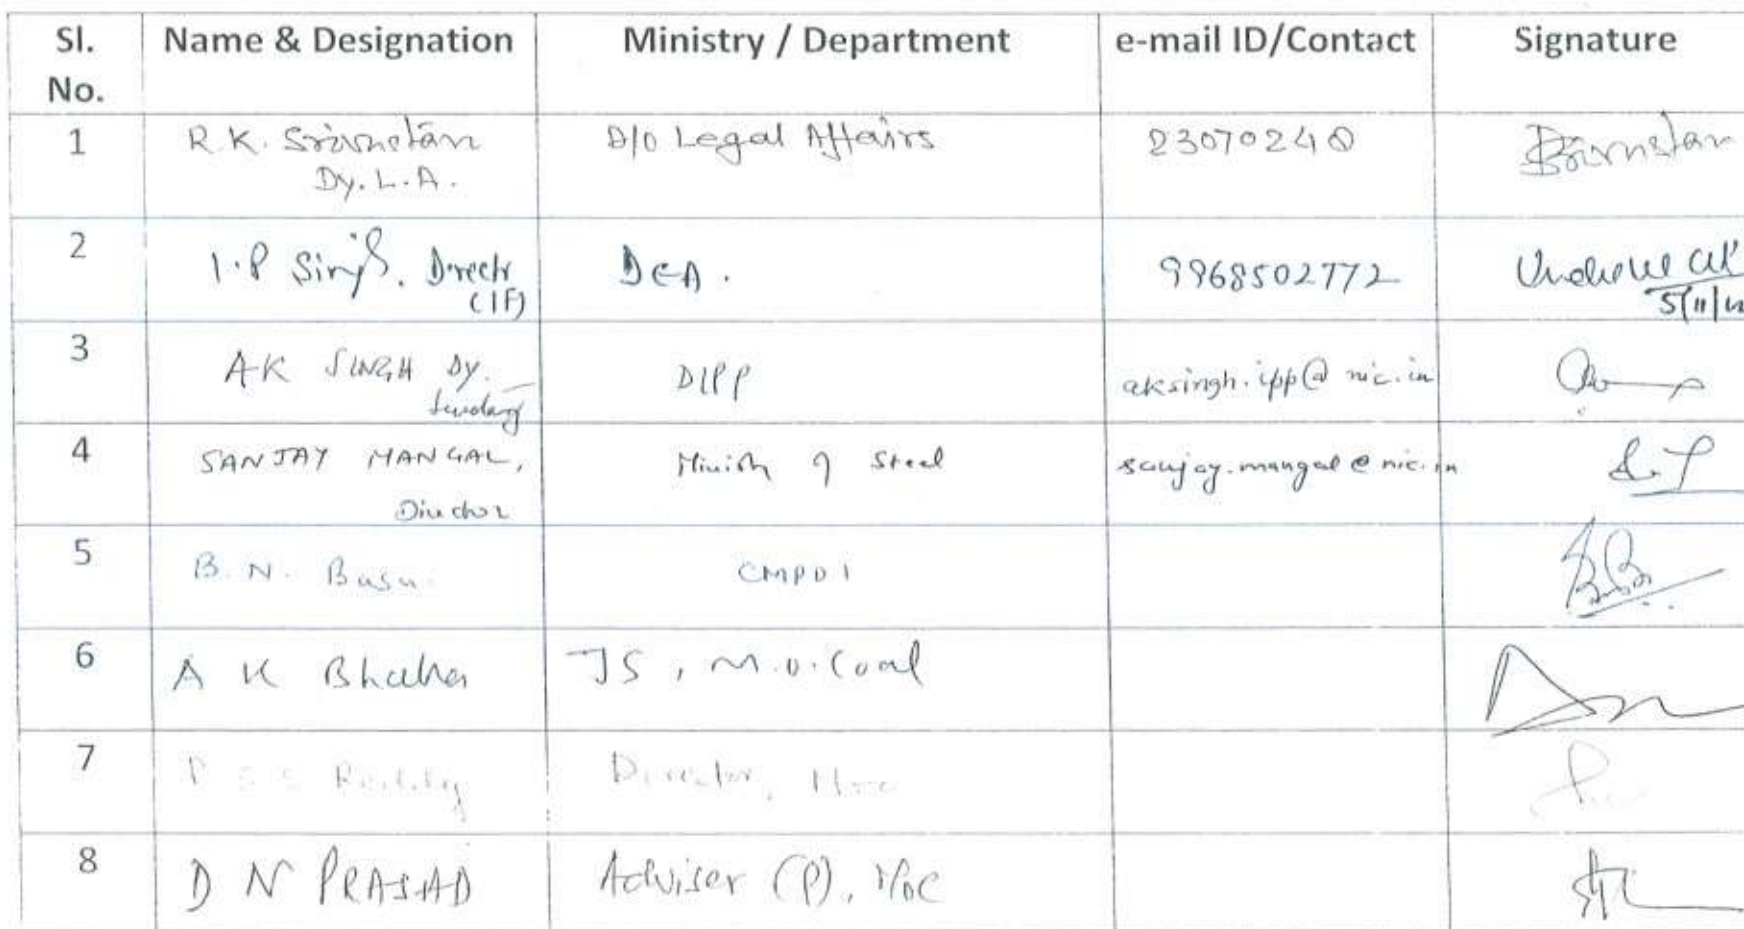 Sl. No. Name & Designation Ministry / Department e-mail ID/Contact Signature
1 R.K. Srivastav D/O Legal Affairs 23070240
Dy. L.A.
2 I.P Singh, Director DEA. 9968502772
(IF) 5/11/12
3 AK SINGH Dy. DIPP aksingh.ipp@nic.in
4 SANJAY MANGAL, Ministry of Steel sanjay.mangal@nic.in
Director
5 B. N. Basu CMPDI
6 A K Bhalla JS, M.o.Coal
7 P S S Reddy Director, MoC
8 D N PRASAD Adviser (P), MoC